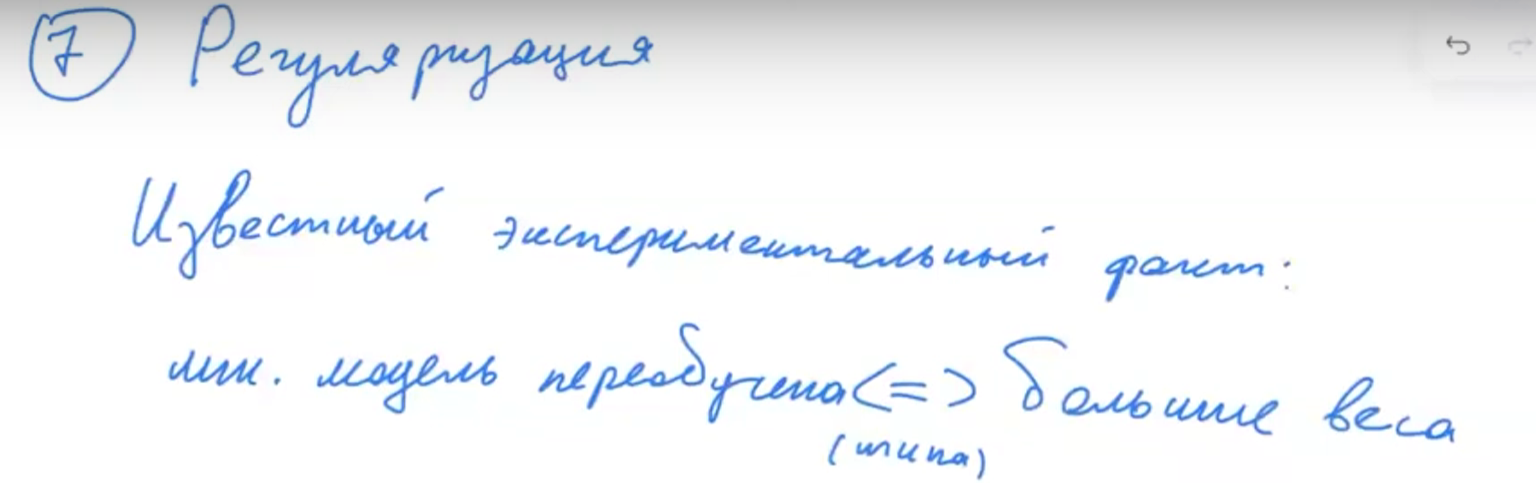 7 Регуляризация
Известный экспериментальный факт:
лин. модель переобучена <=> большие веса
(типа)